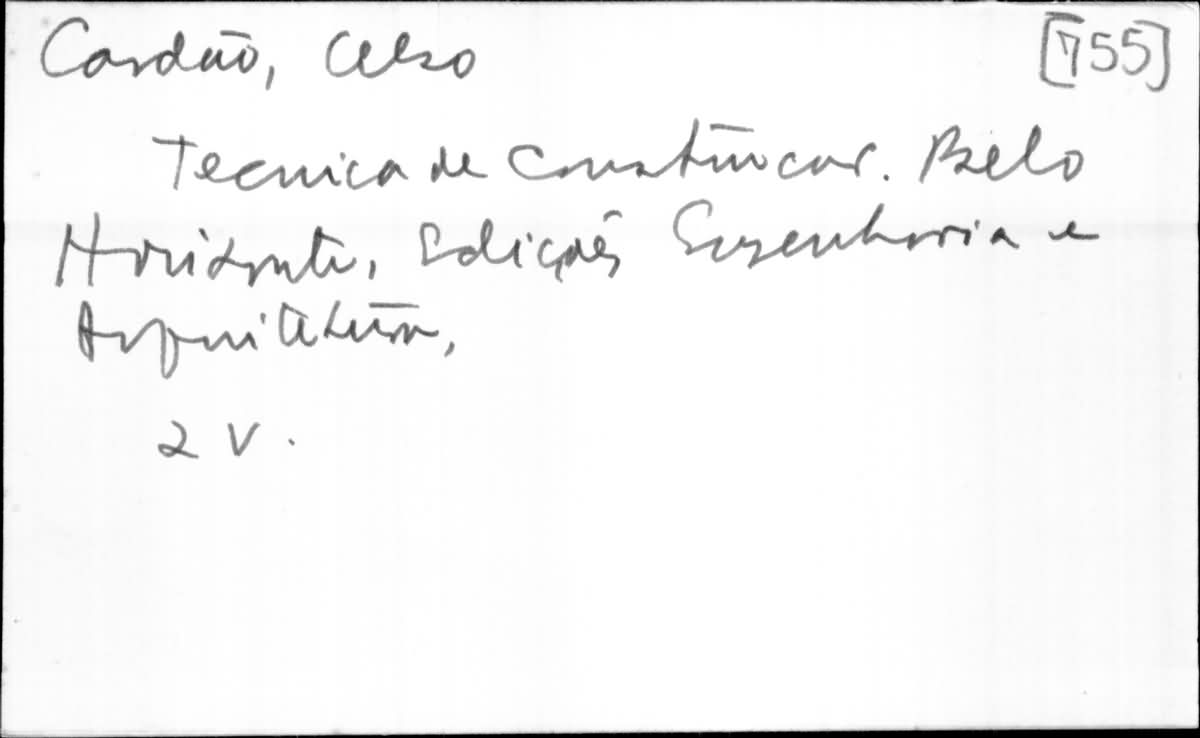 Cardão, Celso [755]
Tecnica de Construcao. Belo
Horizonte, Edições Engenharia e
Arquitetura,
2 V.